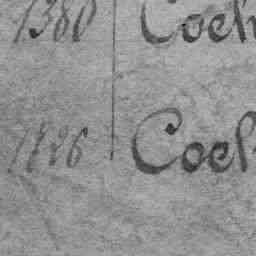 1380 Coeh
1826 Coel